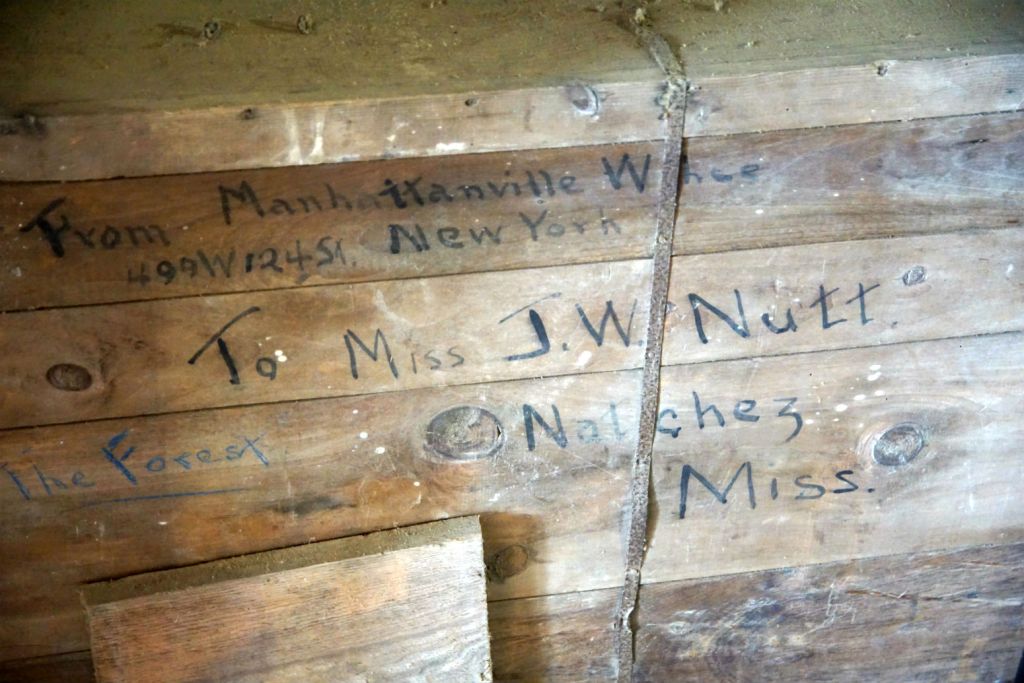 From Manhattanville
499 W 124 St. New York
To Miss J.W. Nutt.
"The Forest" Natchez
Miss.